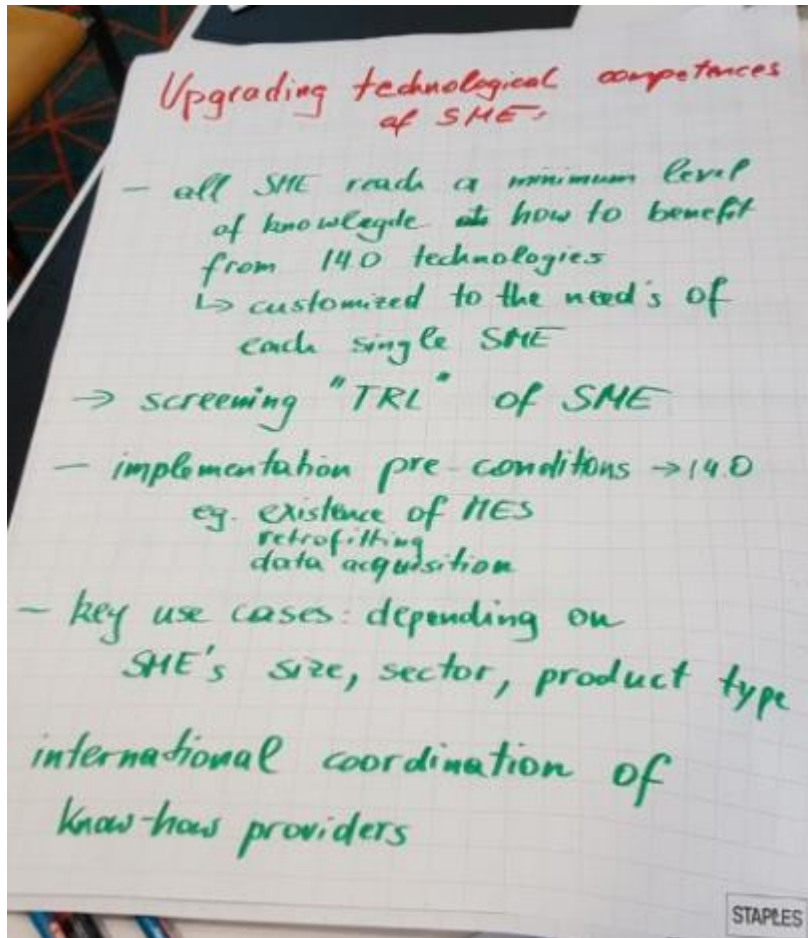 Upgrading technological competences
of SME:
- all SME reach a minimum level
of knowlegde how to benefit
from I4.0 technologies
↳ customized to the need's of
each single SME
→ screening "TRL" of SME
- implementation pre-conditions → I4.0
eg. existence of MES
retrofitting
data acquisition
- key use cases: depending on
SME's size, sector, product type
international coordination of
know-how providers
STAPLES